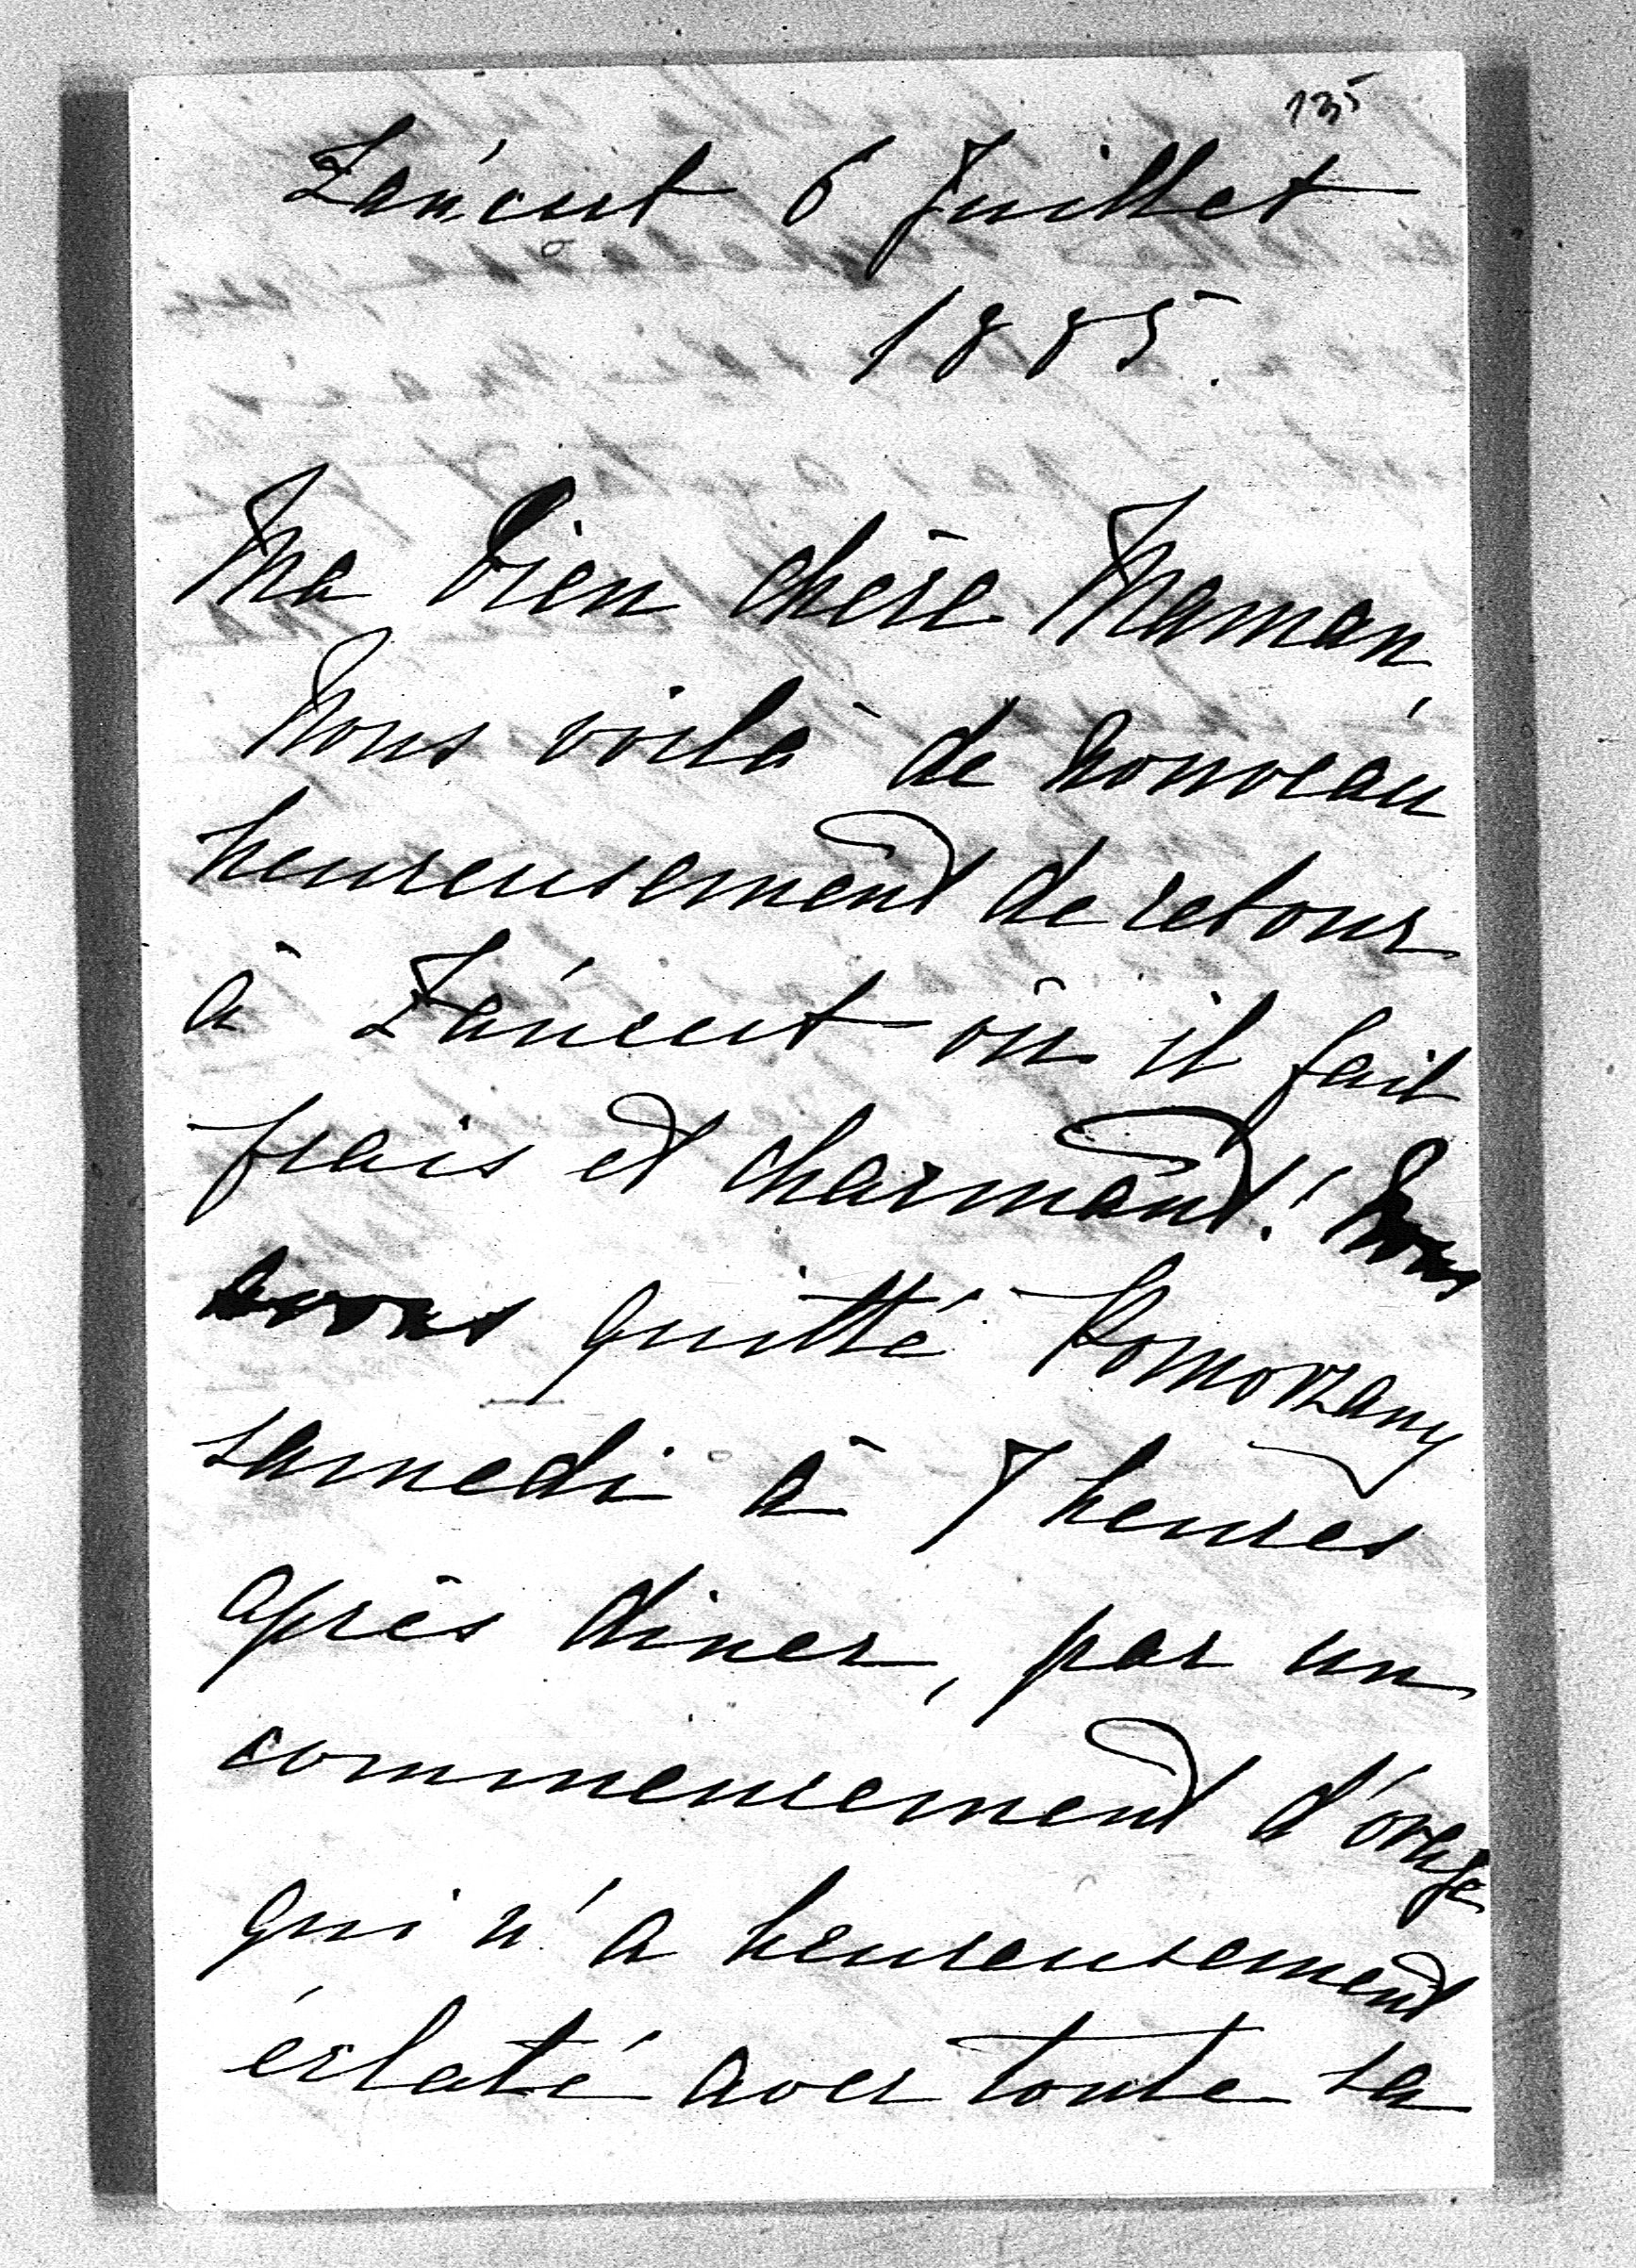 135
Łańcut 6 Juillet
1885.
Ma bien chère Maman,
Nous voilà de nouveau
heureusement de retour
à Łańcut où il fait
frais et charmant! Nous
avons quitté Pomorzany
samedi à 7 heures
après diner, par un
commencement d'orage
qui n'a heureusement
éclaté avec toute sa